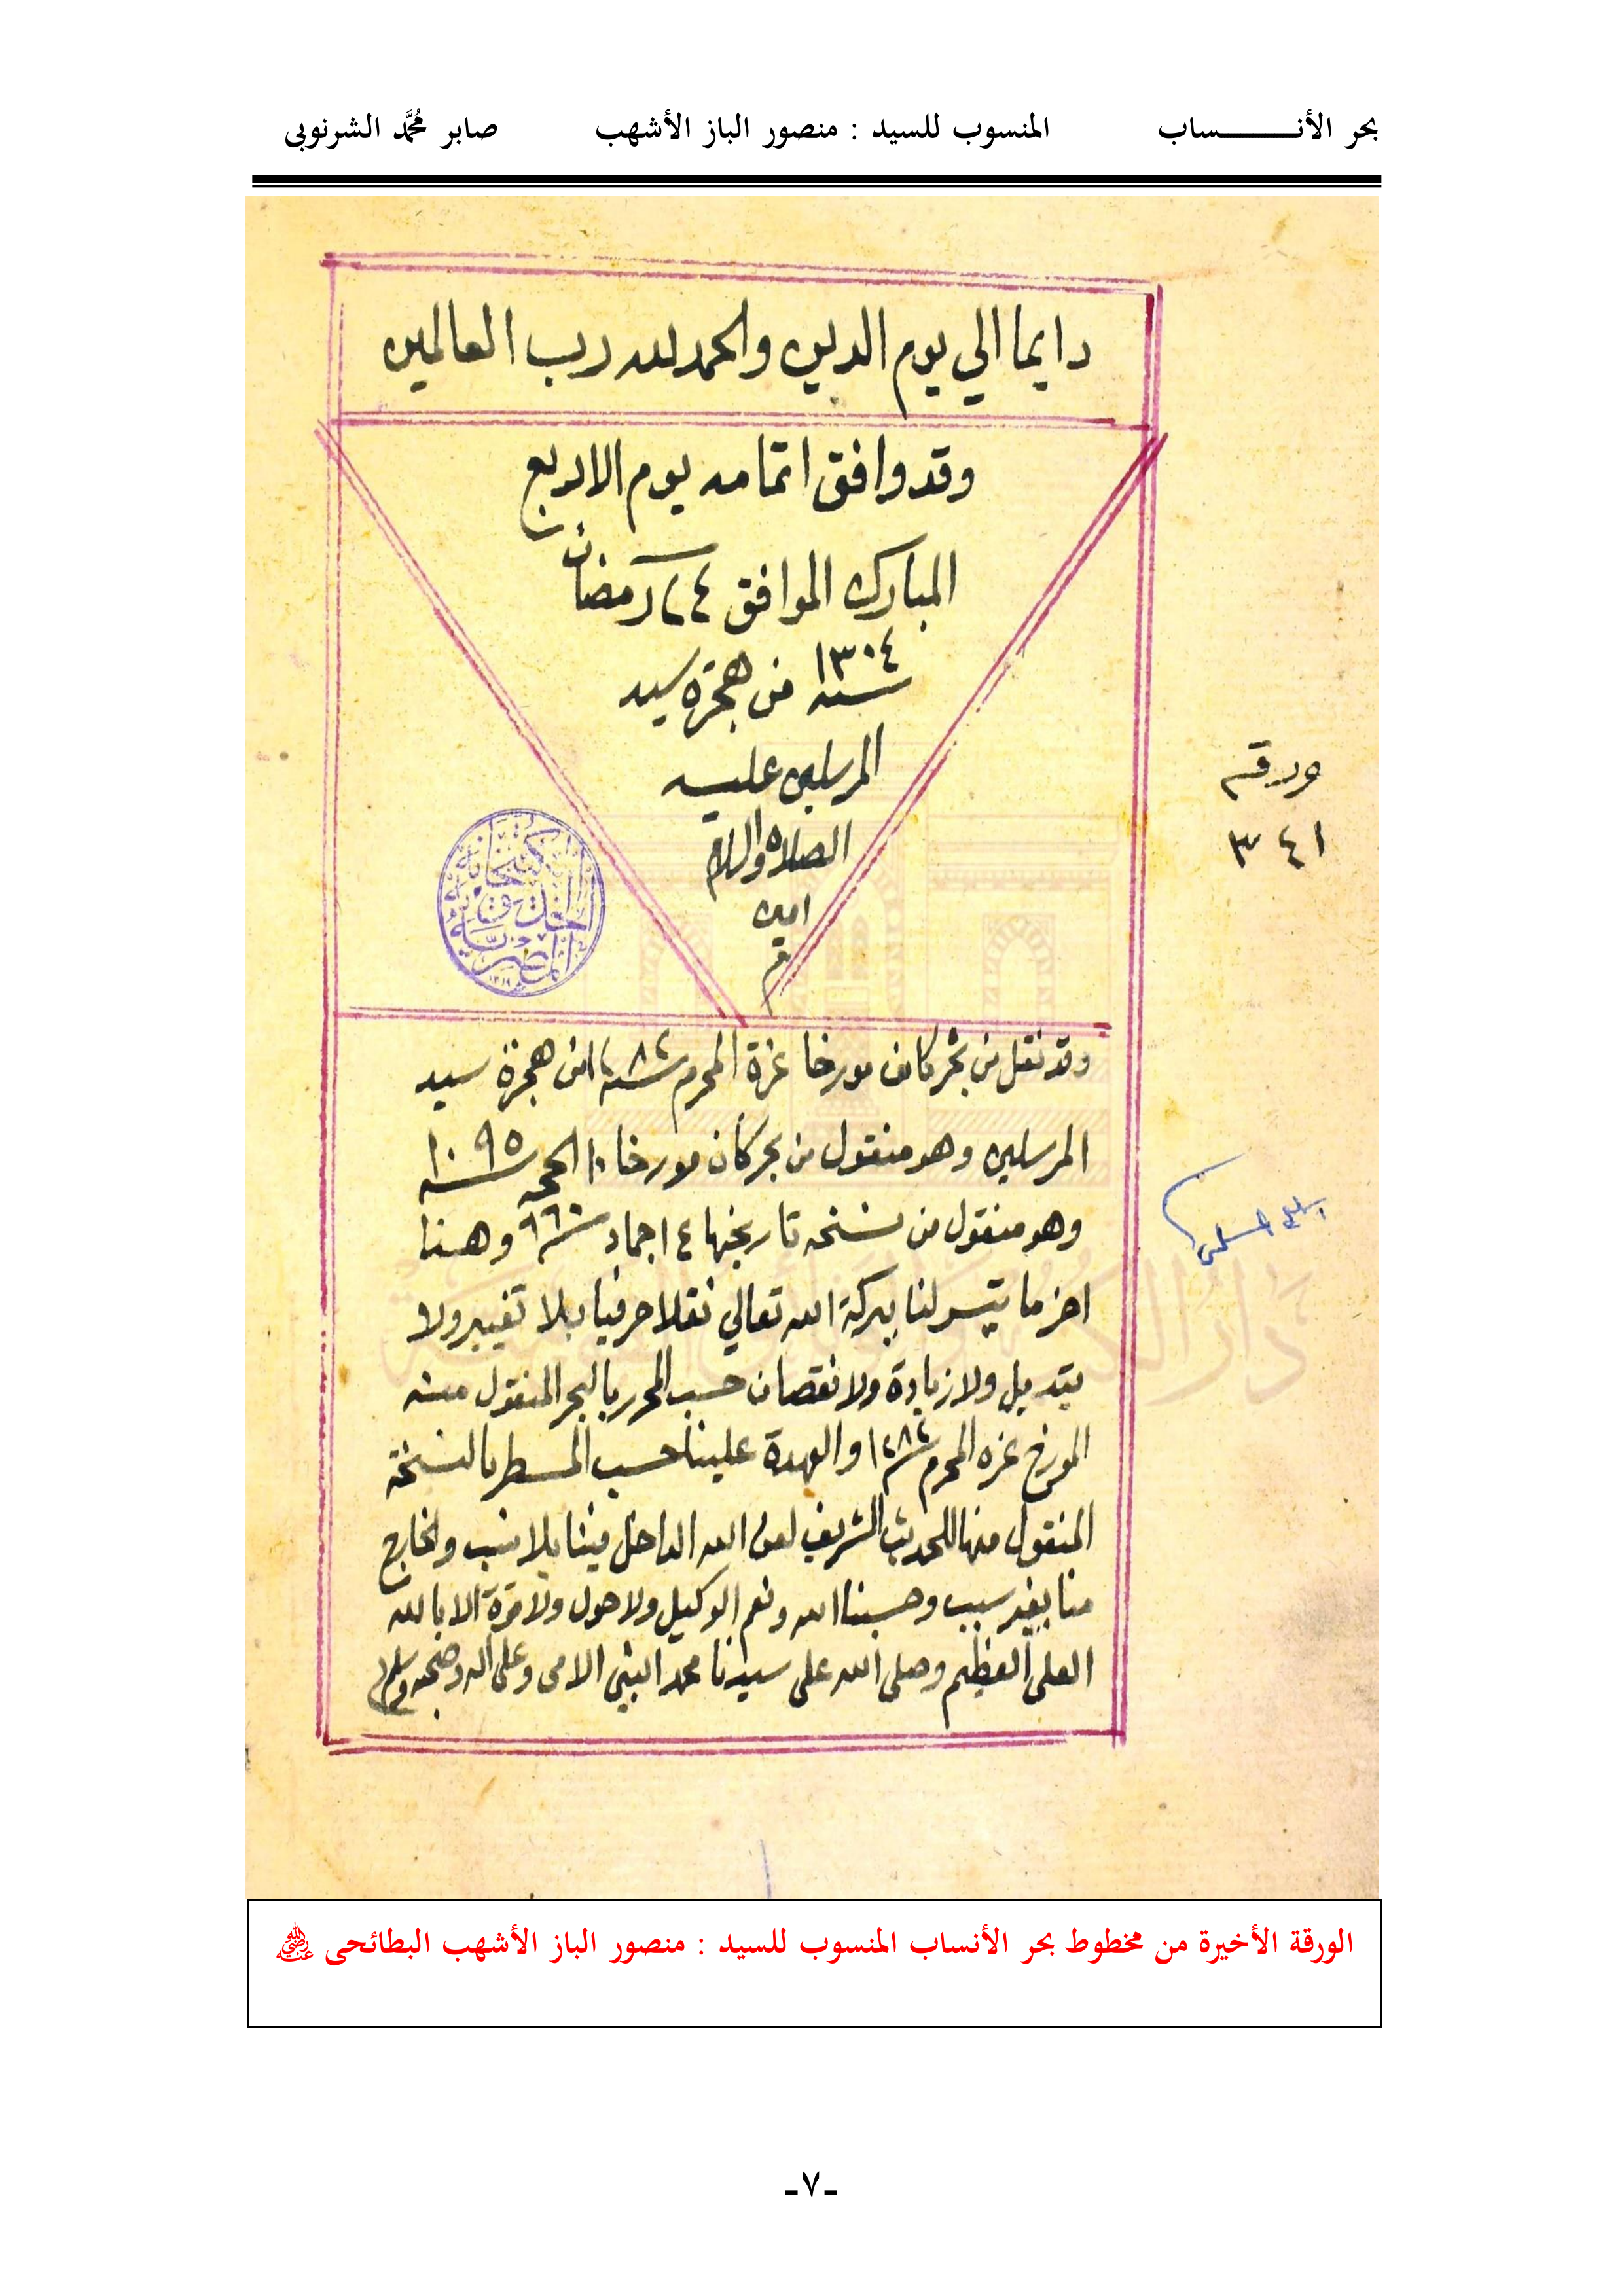 بحر الأنــــــــــساب المنسوب للسيد : منصور الباز الأشهب صابر مُحمَّد الشرنوبى
دايما الي يوم الدين والحمد لله رب العالمين
وقد وافق اتمامه يوم الاربع
المبارك الموافق ٢٤ رمضان
سنه ١٣٠٤ من هجرة سيد
المرسلين عليه
الصلاه والسلام
امين
تم
ورقه
٣٤١
كتبخانة
الخديوية
المصرية
وقد نقل من بحر كان مورخا غرة المحرم سنة ١٢٨٢ من هجرة سيد
المرسلين وهو منقول من بحر كان مورخا ١٠ الحجه سنه ١٠٩٥
وهو منقول من نسخه تاريخها ١٤ جماد سنه ٩٦٠ وهنا
اخر ما تيسر لنا ببركة الله تعالي نقلا حرفيا بلا تغيير ولا
تبديل ولا زيادة ولا نقصان حسب المحرر بالبحر المنقول منه
المورخ غره المحرم سنة ١٢٨٢ والعهدة علينا حسب المسطر بالنسخة
المنقول منها للحديث الشريف لعن الله الداخل فينا بلا نسب والخارج
منا بغير سبب وحسبنا الله ونعم الوكيل ولا حول ولا قوة الا بالله
العلي العظيم وصلى الله على سيدنا محمد النبي الامي وعلى اله وصحبه وسلم
دار الكتب والوثائق القومية
الورقة الأخيرة من مخطوط بحر الأنساب المنسوب للسيد : منصور الباز الأشهب البطائحى ﷺ
-٧-